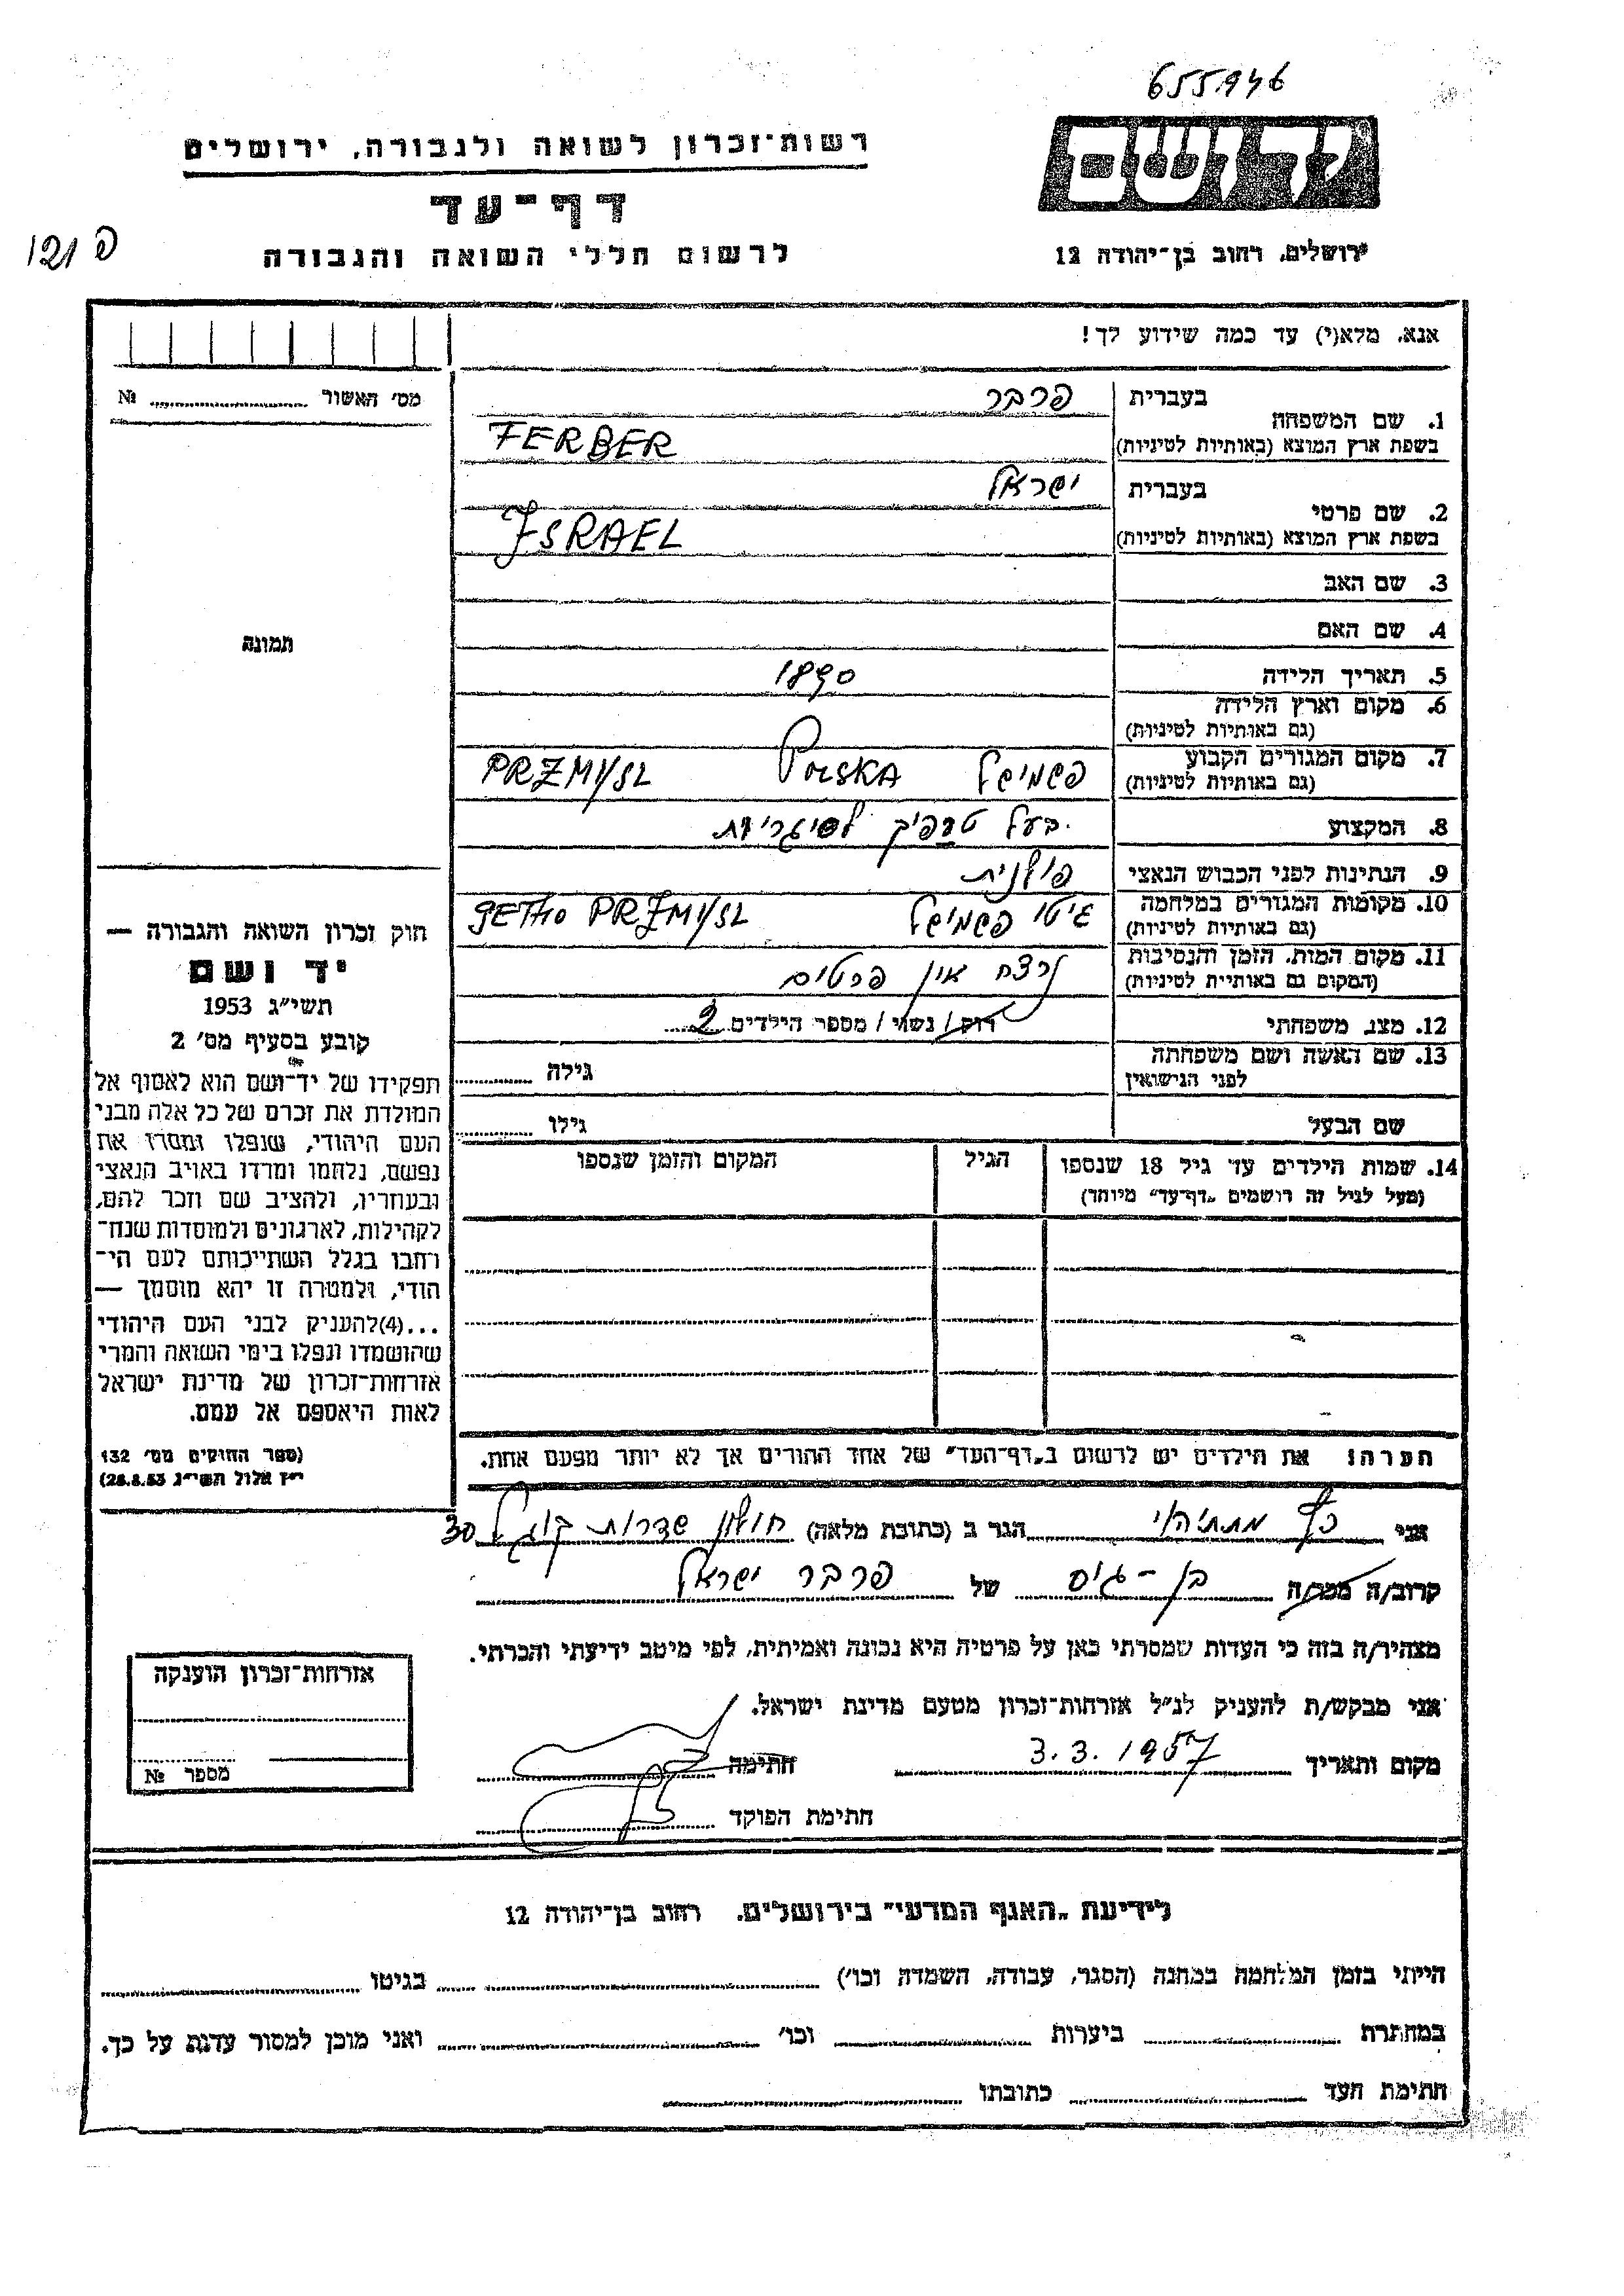 655946
רשות־זכרון לשואה ולגבורה, ירושלים
דף־עד
לרשום חללי השואה והגבורה
פ 121
ידושם
ירושלים, רחוב בן־יהודה 12
אנא, מלא(י) עד כמה שידוע לך!
מס' האשור № 
תמונה
1. שם המשפחה בעברית פרבר
בשפת ארץ המוצא (באותיות לטיניות) FERBER
2. שם פרטי בעברית ישראל
בשפת ארץ המוצא (באותיות לטיניות) ISRAEL
3. שם האב
4. שם האם
5. תאריך הלידה 1890
6. מקום וארץ הלידה
(גם באותיות לטיניות)
7. מקום המגורים הקבוע פשמישל POLSKA PRZMYSL
(גם באותיות לטיניות)
8. המקצוע בעל טרפיק לסיגריות
9. הנתינות לפני הכבוש הנאצי פולנית
10. מקומות המגורים במלחמה גיטו פשמישל GETHO PRZMYSL
(גם באותיות לטיניות)
11. מקום המות, הזמן והנסיבות נרצח אין פרטים
(המקום גם באותיות לטיניות)
12. מצב משפחתי רוק / נשוי / מספר הילדים 2
13. שם האשה ושם משפחתה
לפני הנישואין גילה
שם הבעל גילו
14. שמות הילדים עד גיל 18 שנספו הגיל המקום והזמן שנספו
(מעל לגיל זה רושמים „דף־עד" מיוחד)
הערה: את הילדים יש לרשום ב„דף־העד" של אחד ההורים אך לא יותר מפעם אחת.
חוק זכרון השואה והגבורה —
יד ושם
תשי"ג 1953
קובע בסעיף מס' 2
תפקידו של יד־ושם הוא לאסוף אל
המולדת את זכרם של כל אלה מבני
העם היהודי, שנפלו ומסרו את
נפשם, נלחמו ומרדו באויב הנאצי
ובעוזריו, ולהציב שם וזכר להם,
לקהילות, לארגונים ולמוסדות שנח־
רחבו בגלל השתייכותם לעם הי־
הודי, ולמטרה זו יהא מוסמך —
...(4) להעניק לבני העם היהודי
שהושמדו ונפלו בימי השואה והמרי
אזרחות־זכרון של מדינת ישראל
לאות היאספם אל עמם.
(ספר החוקים מס' 132
י"ז אלול תשי"ג 28.8.53)
אני כץ מתתיהו הגר ב (כתובת מלאה) חולון שדרות קוגל 30
קרוב/ה מכר/ה בן-גיס של פרבר ישראל
מצהיר/ה בזה כי העדות שמסרתי כאן על פרטיה היא נכונה ואמיתית, לפי מיטב ידיעתי והכרתי.
אני מבקש/ת להעניק לנ"ל אזרחות־זכרון מטעם מדינת ישראל.
מקום ותאריך 3.3.1957 חתימה
חתימת הפוקד
אזרחות־זכרון הוענקה
מספר №
לידיעת „האגף המדעי" בירושלים, רחוב בן־יהודה 12
הייתי בזמן המלחמה במחנה (הסגר, עבודה, השמדה וכו') בגיטו
במחתרת ביערות וכו' ואני מוכן למסור עדות על כך.
חתימת העד כתובתו